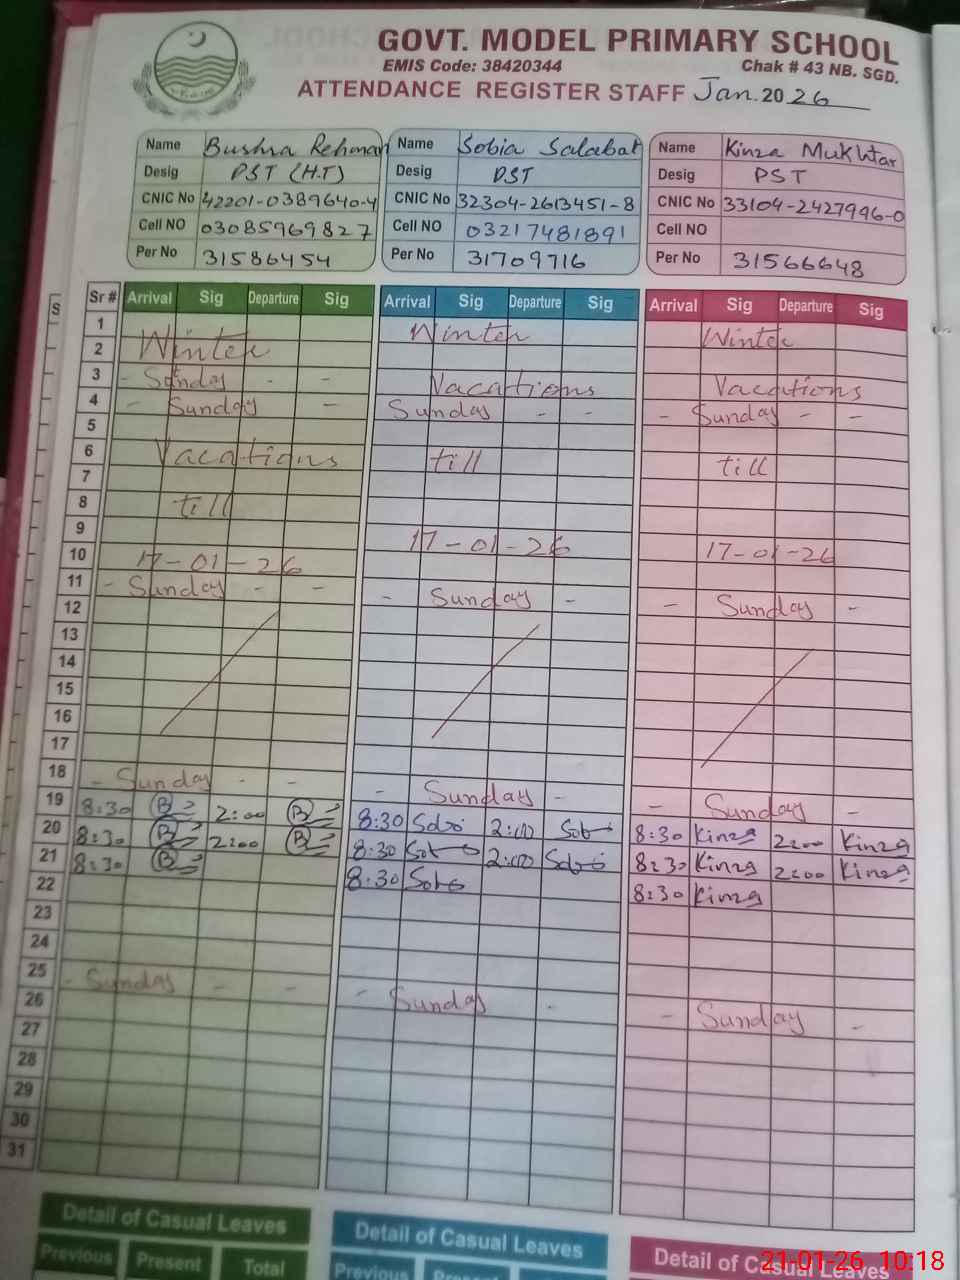 GOVT. MODEL PRIMARY SCHOOL
EMIS Code: 38420344 Chak # 43 NB. SGD.
ATTENDANCE REGISTER STAFF Jan. 2026
Name Bushra Rehman Name Sobia Salabat Name Kinza Mukhtar
Desig PST (H.T) Desig PST Desig PST
CNIC No 42201-0389640-4 CNIC No 32304-2613451-8 CNIC No 33104-2427996-0
Cell NO 03085969827 Cell NO 03217481891 Cell NO
Per No 31586454 Per No 31709716 Per No 31566648
Sr # Arrival Sig Departure Sig Arrival Sig Departure Sig Arrival Sig Departure Sig
1 Winter Winter
2 Winter
3 - Sunday - - Vacations Vacations
4 - Sunday - Sunday - - - Sunday - -
5
6 Vacations till till
7
8 till
9 17-01-26 17-01-26
10 17-01-26
11 - Sunday - - - Sunday - - Sunday -
12
13
14
15
16
17
18 - Sunday - - - Sunday - - Sunday -
19 8:30 B 2:00 B 8:30 Sobi 2:00 Sob 8:30 Kinza 2:00 Kinza
20 8:30 B 2:00 B 8:30 Sob 2:00 Sobi 8:30 Kinza 2:00 Kinza
21 8:30 B 8:30 Sobi 8:30 Kinza
22
23
24
25 - Sunday - - - Sunday - - Sunday -
26
27
28
29
30
31
Detail of Casual Leaves Detail of Casual Leaves Detail of Casual Leaves
Previous Present Total Previous Present
21-01-26 10:18